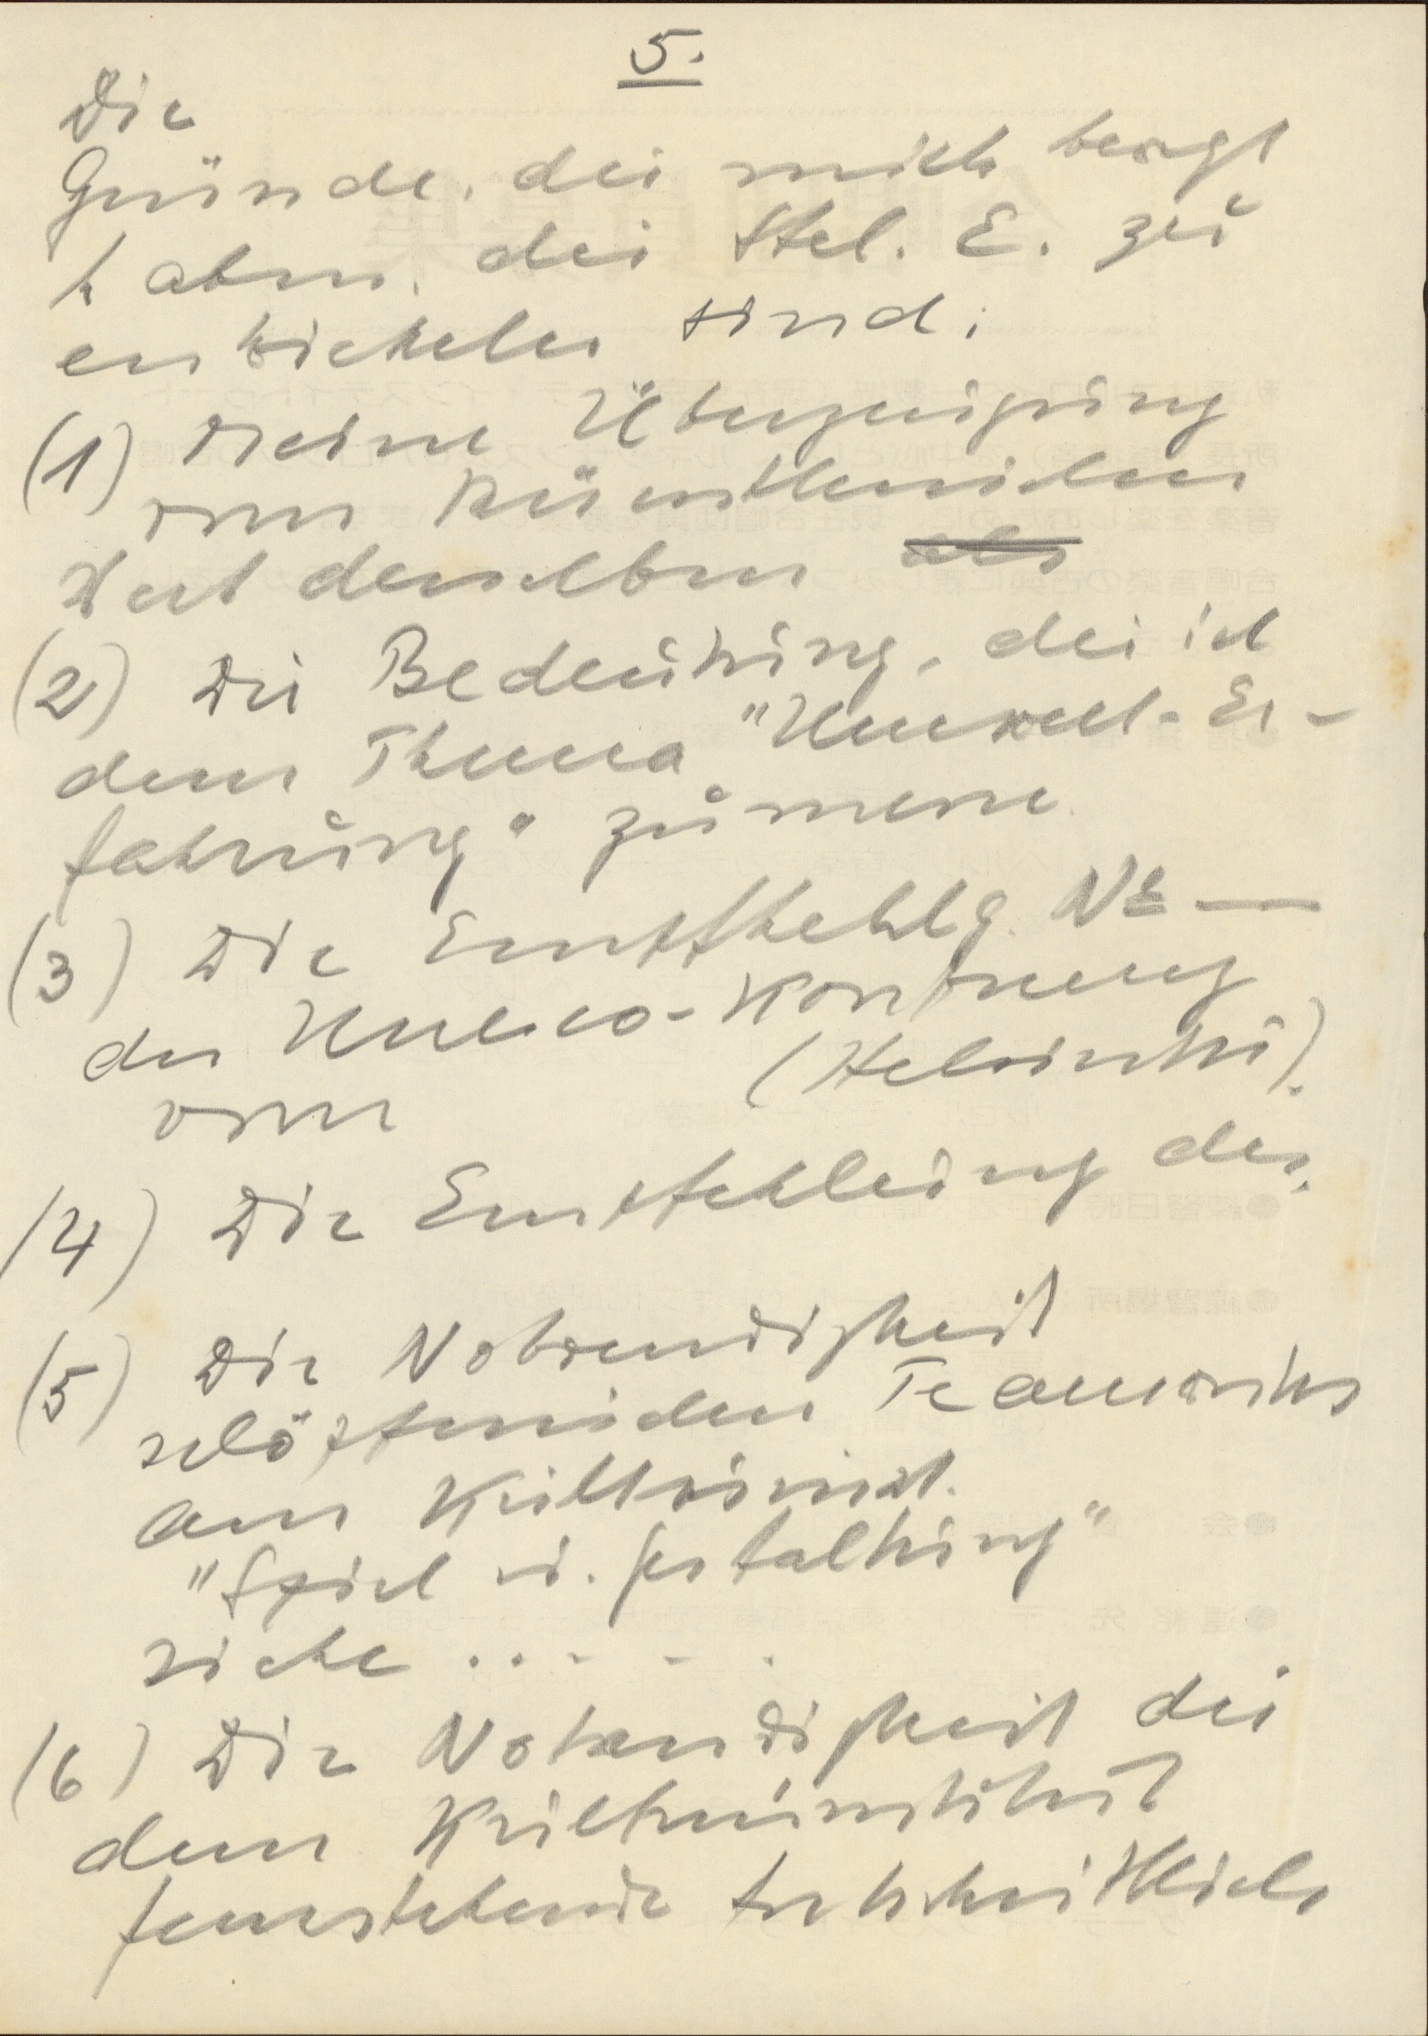 5.
Die
Gründe, die mich bewogt
haben, die Stel. E. zu
entwickeln sind:
(1) Meine Überzeugung
vom künstlerischen
Wert derselben als
(2) Die Bedeutung, die ich
dem Thema "Umwelt-Er-
fahrung" zumesse
(3) Die Empfehlg. No —
der Unesco-Konferenz
(Helsinki)
vom
(4) Die Empfehlung des
(5) Die Notwendigkeit
schöpferischen Teamworks
am Kulturinst.
"Spiel u. Gestaltung"
siehe . . . . .
(6) Die Notwendigkeit die
dem Kulturinstitut
fernstehende fortschrittlich